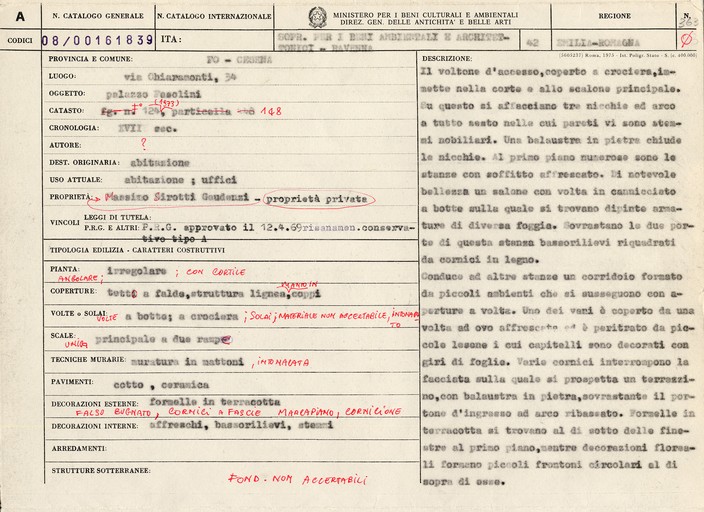 A
N. CATALOGO GENERALE
N. CATALOGO INTERNAZIONALE
MINISTERO PER I BENI CULTURALI E AMBIENTALI
DIREZ. GEN. DELLE ANTICHITA' E BELLE ARTI
REGIONE
N.
CODICI
08/00161839
ITA:
SOPR. PER I BENI AMBIENTALI E ARCHITET-
TONICI - RAVENNA
42
EMILIA-ROMAGNA
PROVINCIA E COMUNE: FO - CESENA
LUOGO: via Chiaramonti, 34
OGGETTO: palazzo Pasolini
CATASTO: fg. n. 124, particella 148
(1973)
CRONOLOGIA: XVII sec.
AUTORE: ?
DEST. ORIGINARIA: abitazione
USO ATTUALE: abitazione ; uffici
PROPRIETÀ: Massimo Sirotti Gaudenzi - proprietà privata
VINCOLI
LEGGI DI TUTELA:
P.R.G. E ALTRI: P.R.G. approvato il 12.4.69 risanamen.conserva-
tivo tipo A
TIPOLOGIA EDILIZIA - CARATTERI COSTRUTTIVI
PIANTA: irregolare ; CON CORTILE
ANGOLARE;
COPERTURE: tetto a falde,struttura lignea,coppi
VOLTE o SOLAI: VOLTE a botte; a crociera ; SOLAI; MATERIALE NON ACCERTABILE, INTONACA
TO
SCALE: principale a due rampe
UNICA
TECNICHE MURARIE: muratura in mattoni , INTONACATA
PAVIMENTI: cotto , ceramica
DECORAZIONI ESTERNE: formelle in terracotta
FALSO BUGNATO, CORNICI A FASCIE MARCAPIANO, CORNICIONE
DECORAZIONI INTERNE: affreschi, bassorilievi, stemmi
ARREDAMENTI:
STRUTTURE SOTTERRANEE:
FOND. NON ACCERTABILI
(3603237) Roma, 1975 - Ist. Poligr. Stato - S. (c. 400.000)
DESCRIZIONE:
Il voltone d'accesso,coperto a crociera,im-
mette nella corte e allo scalone principale.
Su questo si affacciano tre nicchie ad arco
a tutto sesto nelle cui pareti vi sono stem-
mi nobiliari. Una balaustra in pietra chiude
le nicchie. Al primo piano numerose sono le
stanze con soffitto affrescato. Di notevole
bellezza un salone con volta in cannicciato
a botte sulla quale si trovano dipinte arma-
ture di diversa foggia. Sovrastano le due por-
te di questa stanza bassorilievi riquadrati
da cornici in legno.
Conduce ad altre stanze un corridoio formato
da piccoli ambienti che si susseguono con a-
perture a volta. Uno dei vani è coperto da una
volta ad ovo affrescata ed è peritrato da pic-
cole lesene i cui capitelli sono decorati con
giri di foglie. Varie cornici interrompono la
facciata sulla quale si prospetta un terrazzi-
no,con balaustra in pietra,sovrastante il por-
tone d'ingresso ad arco ribassato. Formelle in
terracotta si trovano al di sotto delle fine-
stre al primo piano,mentre decorazioni florea-
li formano piccoli frontoni circolari al di
sopra di esse.